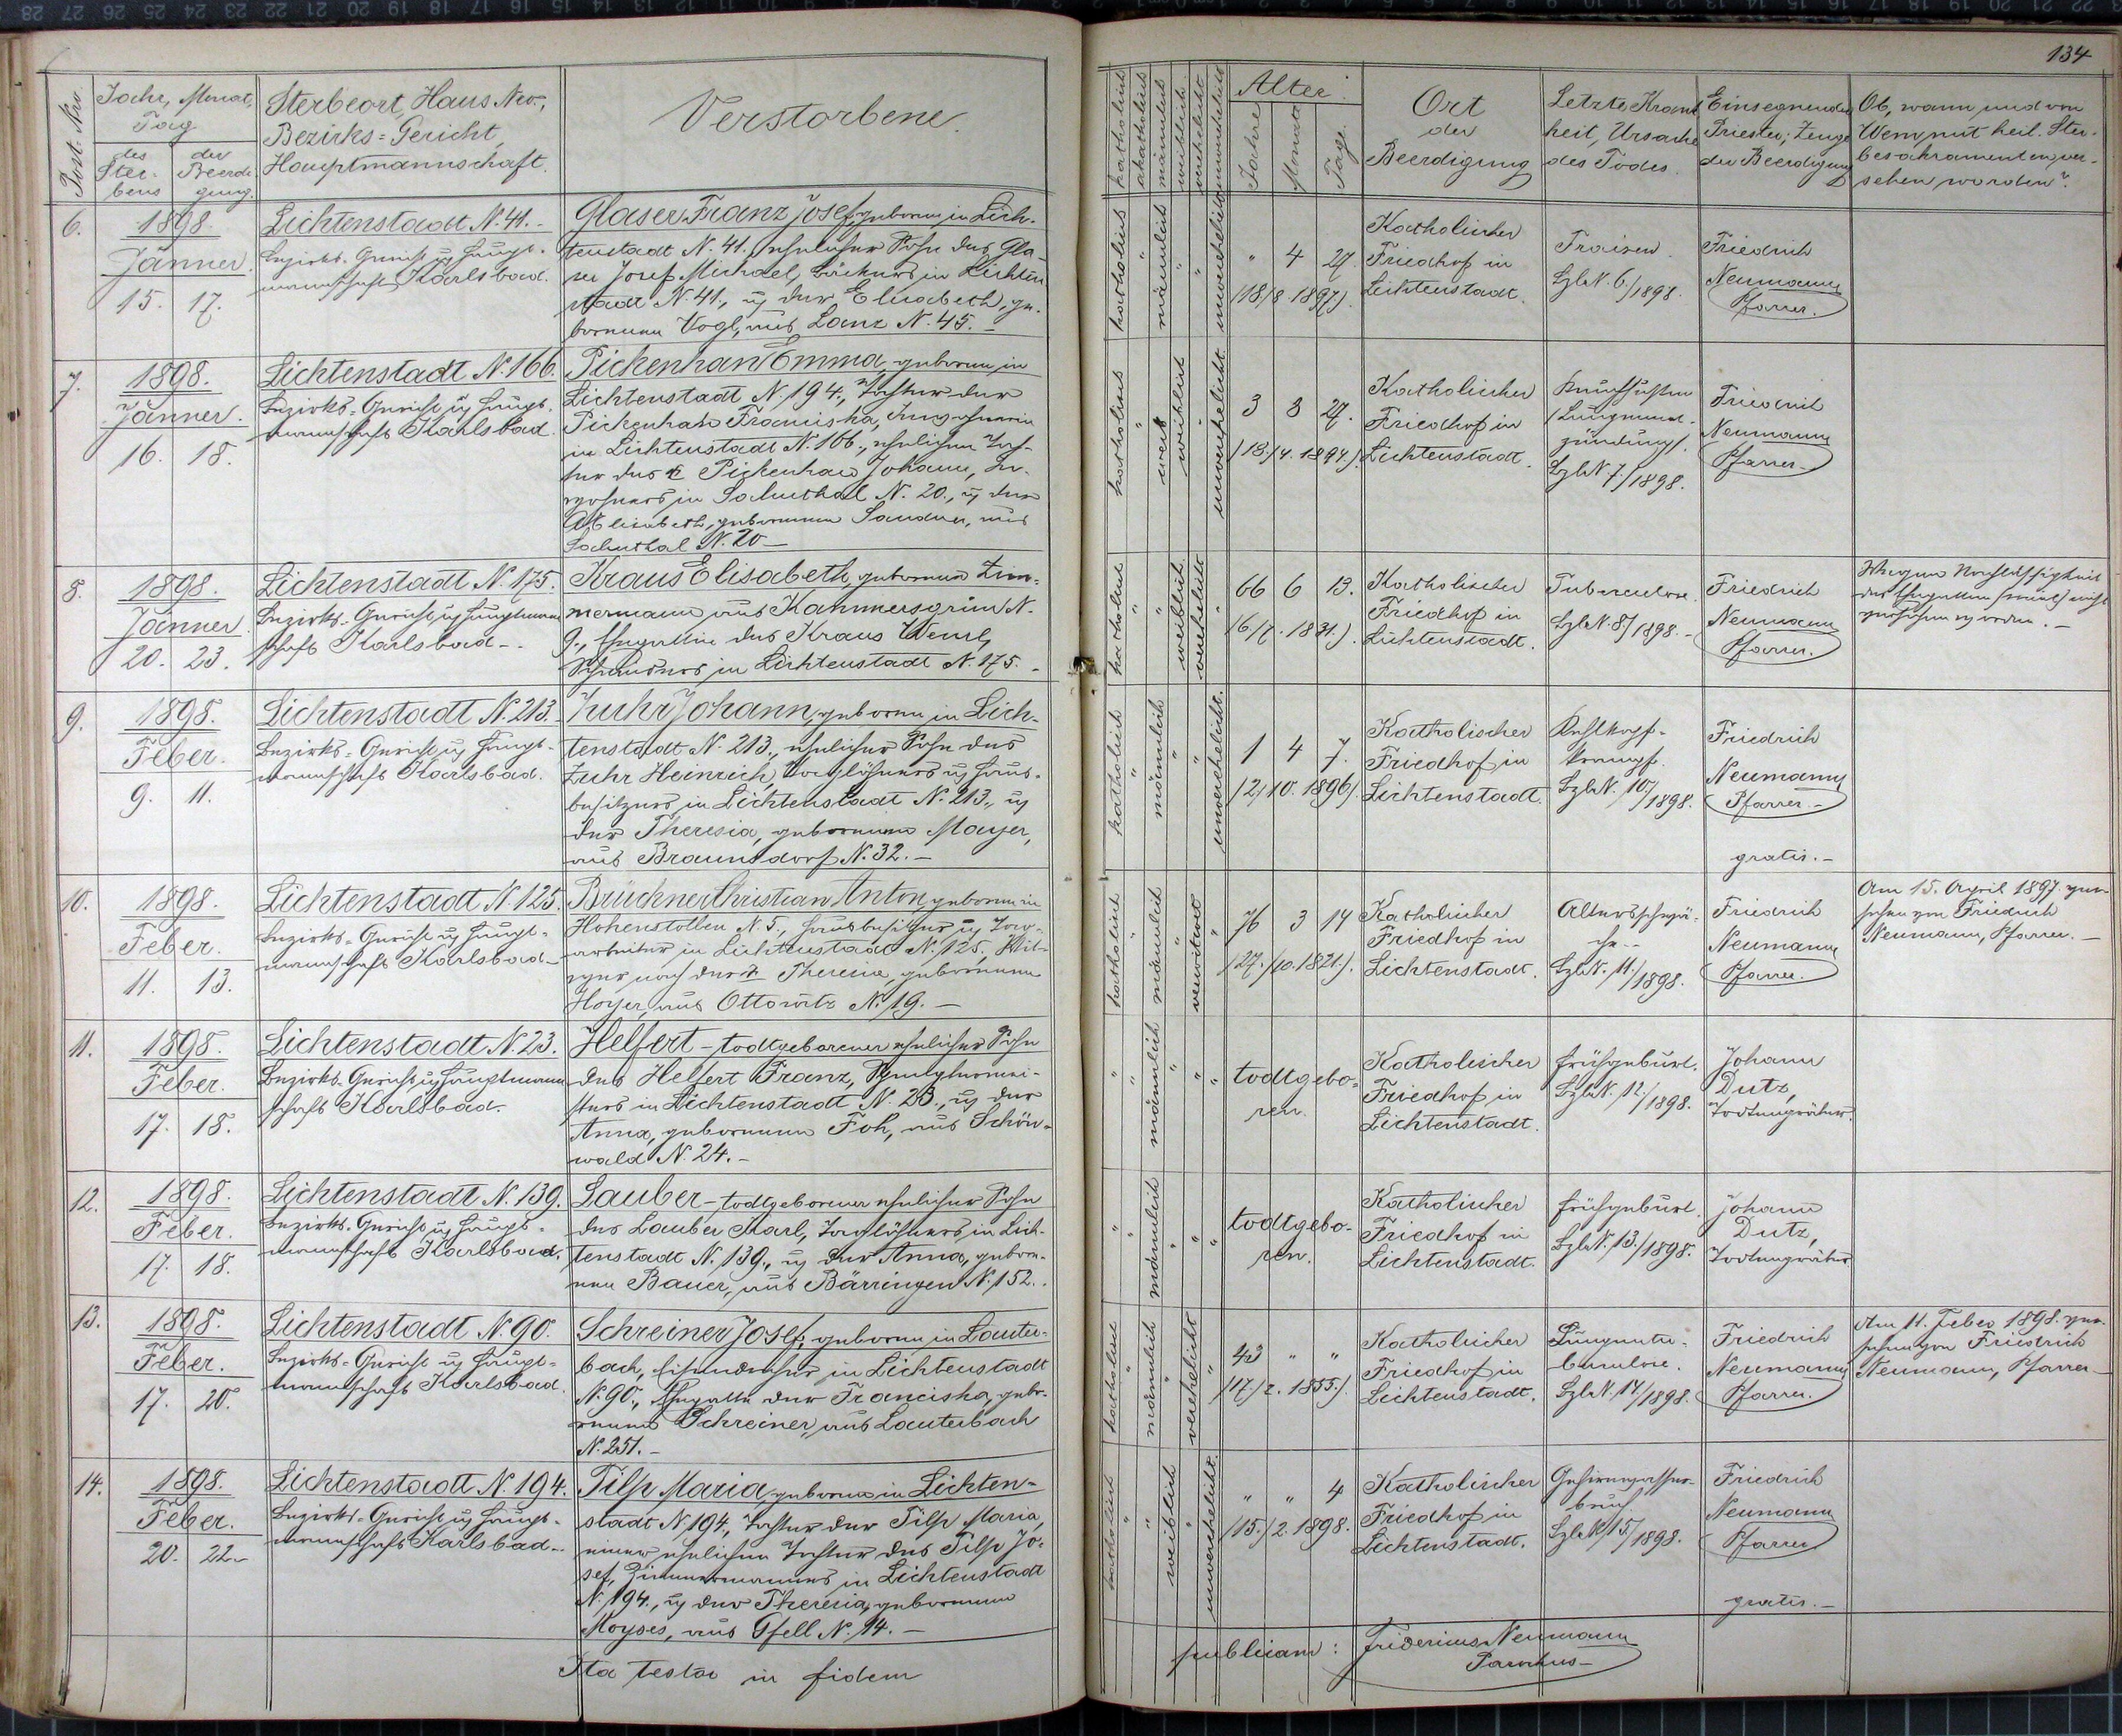 134
Post-Nro.
Jahr, Monat,
Tag
des
Ster-
bens
der
Beerdi-
gung.
Sterbeort, Haus Nro.,
Bezirks-Gericht,
Hauptmannschaft.
Verstorbene.
katholisch
akatholisch
männlich
weiblich
verehelicht
unverehelicht
Alter.
Jahre
Monate
Tage.
Ort
der
Beerdigung
Letzte Krank
heit, Ursache
des Todes.
Einsegnender
Priester, Zeuge
der Beerdigung
Ob, wann und von
Wem mit heil. Ster-
besakramenten ver-
sehen worden?
6.
1898.
Jänner.
15. 17.
Lichtenstadt N. 41.-
Bezirks-Gericht u Haupt-
mannschaft Karlsbad.
Glaser Franz Josef, geboren in Lich-
tenstadt N. 41., ehelicher Sohn des Gla-
ser Josef Michael, Bäckers in Lichten
stadt N. 41., u der Elisabeth, ge-
bornenen Vogl, aus Lanz N. 45.-
katholisch " männlich " " unverehelicht
" 4 27.
(18/8. 1897).
Katholischer
Friedhof in
Lichtenstadt.
Fraisen.
Bzl. N. 6./1898.
Friedrich
Neumann
Pfarrer.
7.
1898.
Jänner.
16. 18.
Lichtenstadt N. 166.
Bezirks-Gericht u Haupt-
mannschaft Karlsbad.
Pickenhan Emma, geboren in
Lichtenstadt N. 194., Tochter der
Pickenhan Franziska, Inwohnerin
in Lichtenstadt N. 166., ehelichen Toch-
ter des Pickenhan Johann, In-
wohners in Salmthal N. 20., u der
Elisabeth, gebornenen Sandner, aus
Salmthal N. 20-
katholisch " weiblich " unverehelicht.
3 8 27.
(18./4. 1894.)
Katholischer
Friedhof in
Lichtenstadt.
Keuchhusten
(Lungenent-
zündung).
Bzl. N. 7./1898.
Friedrich
Neumann
Pfarrer-
8.
1898.
Jänner.
20. 23.
Lichtenstadt N. 175.
Bezirks-Gericht u Hauptmann
schaft Karlsbad-.
Kraus Elisabeth, geborene Zim-
mermann aus Kammersgrün N.
9., Ehegattin des Kraus Wenzl,
Schneiders in Lichtenstadt N. 175.-
katholisch " " weiblich verehelicht "
66 6 13.
(6/7. 1831.).
Katholischer
Friedhof in
Lichtenstadt.
Tuberculose.
Bzl. N. 8/1898.-
Friedrich
Neumann
Pfarrer.
Wegen Nachlässigkeit
des Ehegatten nicht
versehen worden.-
9.
1898.
Feber.
9. 11.
Lichtenstadt N. 213.
Bezirks-Gericht u Haupt-
mannschaft Karlsbad.
Zuhr Johann, geboren in Lich-
tenstadt N. 213., ehelicher Sohn des
Zuhr Heinrich, Taglöhners u Haus-
besitzers in Lichtenstadt N. 213., u
der Theresia, gebornenen Mayer,
aus Braunsdorf N. 32.-
katholisch " männlich " " unverehelicht.
1 4 7.
(2/10. 1896).
Katholischer
Friedhof in
Lichtenstadt.
Kehlkopf-
krampf.
Bzl. N. 10/1898.
Friedrich
Neumann
Pfarrer.-
gratis.-
10.
1898.
Feber.
11. 13.
Lichtenstadt N. 125.
Bezirks-Gericht u Haupt-
mannschaft Karlsbad-
Brückner Christian Anton, geboren in
Hohenstollen N. 5., Hausbesitzer u Tag-
arbeiter in Lichtenstadt N. 125., Wit-
wer nach der Theresia, gebornenen
Hoyer, aus Ottowitz N. 19.-
katholisch " männlich " verwitwet "
76 3 14
(27./10. 1821.).
Katholischer
Friedhof in
Lichtenstadt.
Altersschwä-
che.-
Bzl. N. 11./1898.
Friedrich
Neumann
Pfarrer.
Am 15. April 1897. ver-
sehen von Friedrich
Neumann, Pfarrer.-
11.
1898.
Feber.
17. 18.
Lichtenstadt N. 23.
Bezirks-Gericht u Hauptmann
schaft Karlsbad.
Helfert - todtgeborener ehelicher Sohn
des Helfert Franz,
in Lichtenstadt N. 23., u der
Anna, gebornenen Foh, aus Schön-
wald N. 24.-
" " männlich " " "
todtgebo-
ren.
Katholischer
Friedhof in
Lichtenstadt.
Frühgeburt.
Bzl. N. 12./1898.
Johann
Dutz,
Todtengräber.
12.
1898.
Feber.
17. 18.
Lichtenstadt N. 139.
Bezirks-Gericht u Haupt-
mannschaft Karlsbad.
Lauber - todtgeborener ehelicher Sohn
des Lauber Karl, Taglöhners in Lich-
tenstadt N. 139., u der Anna, gebor-
nen Bauer, aus Bärringen N. 152.
" " männlich " " "
todtgebo-
ren.
Katholischer
Friedhof in
Lichtenstadt.
Frühgeburt.
Bzl. N. 13./1898.
Johann
Dutz,
Todtengräber
13.
1898.
Feber.
17. 20.
Lichtenstadt N. 90.
Bezirks-Gericht u Haupt-
mannschaft Karlsbad.
Schreiner Josef, geboren in Lauter-
bach, Eisendreher in Lichtenstadt
N. 90., Ehegatte der Franciska, gebo-
renen Schreiner, aus Lauterbach
N. 251.-
katholisch " männlich " verehelicht "
43 " "
(17/2. 1855.)
Katholischer
Friedhof in
Lichtenstadt.
Lungentu-
berculose.
Bzl. N. 14/1898.
Friedrich
Neumann
Pfarrer.
Am 11. Feber 1898. ver-
sehen von Friedrich
Neumann, Pfarrer-
14.
1898.
Feber.
20. 22.-
Lichtenstadt N. 194.
Bezirks-Gericht u Haupt-
mannschaft Karlsbad-.
Tilp Maria, geboren in Lichten-
stadt N. 194., Tochter der Tilp Maria,
einer ehelichen Tochter des Tilp Jo-
sef, Zimmermannes in Lichtenstadt
N. 194., u der Theresia, gebornenen
Moyses, aus Gfell N. 14.-
katholisch " " weiblich " unverehelicht.
" " 4
(15./2. 1898.
Katholischer
Friedhof in
Lichtenstadt.
Gehirnwasser-
bruch.
Bzl. N. 15./1898.
Friedrich
Neumann
Pfarrer
gratis.-
Ita testor in fidem
publicam: Fridericus Neumann
Parochus-